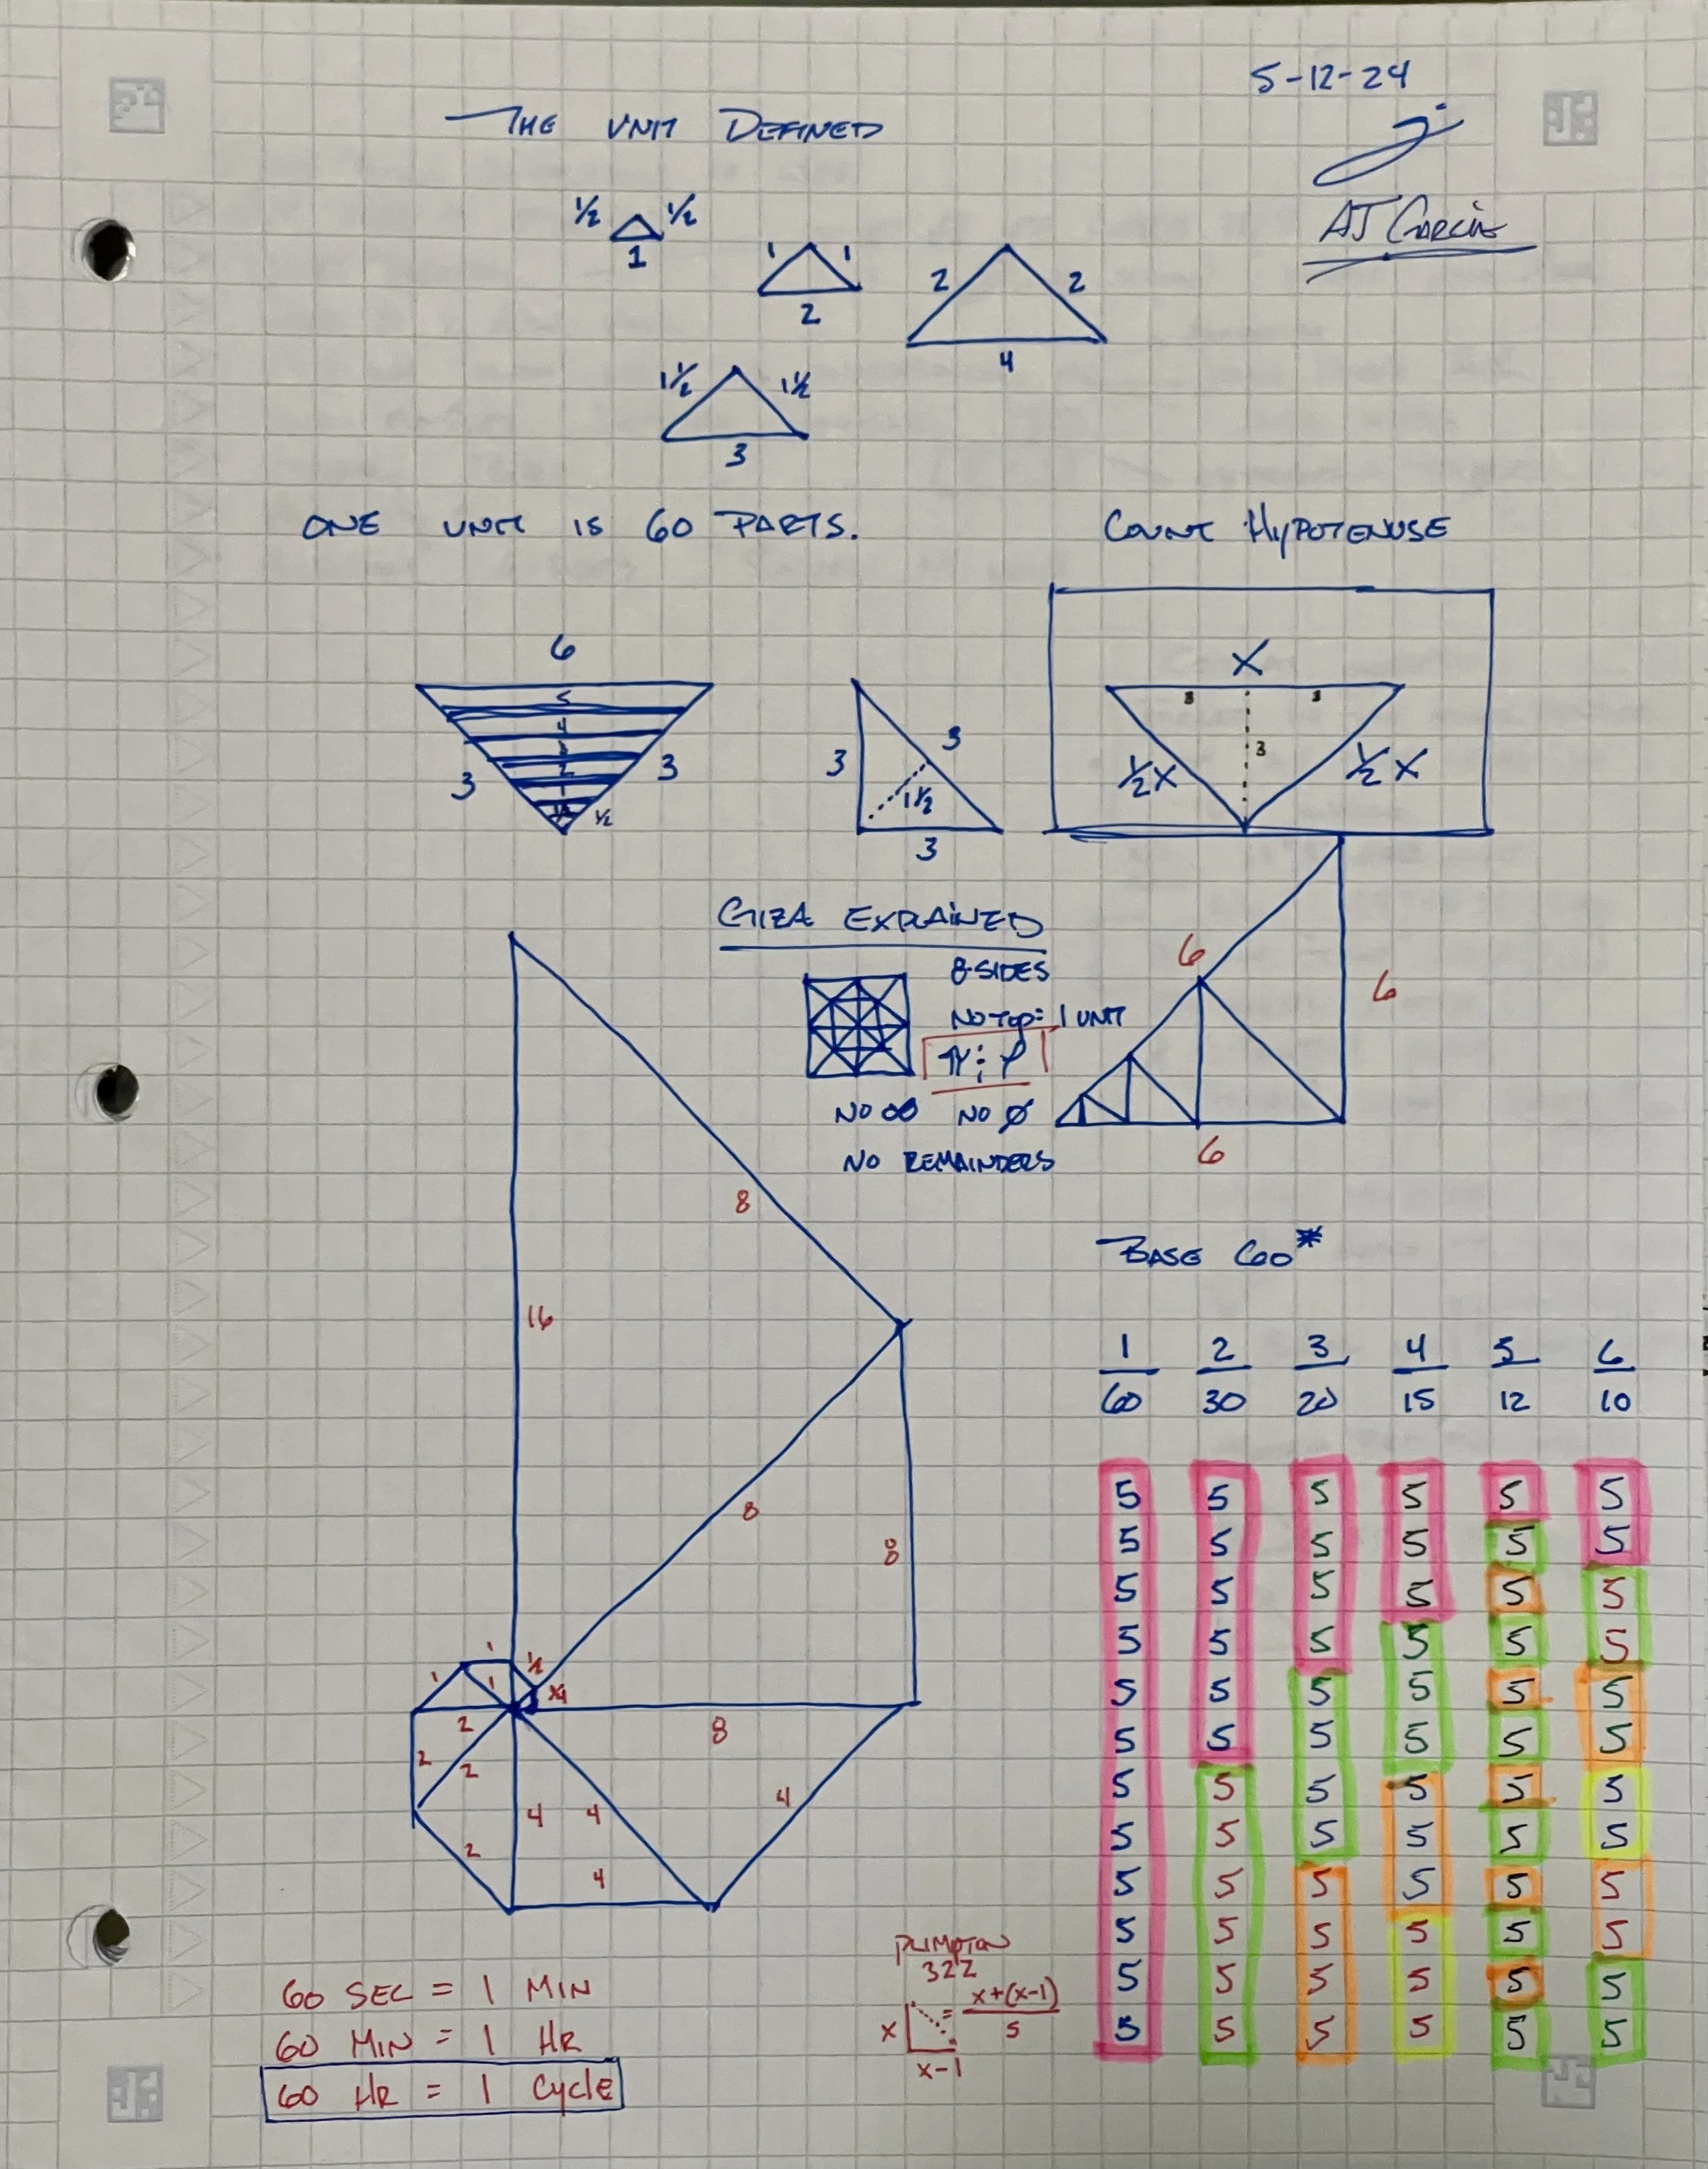 5-12-24
THE UNIT DEFINED
AJ GARCIA
½ ½
1
1 1
2
2 2
4
1½ 1½
3
ONE UNIT IS 60 PARTS.
COUNT HYPOTENUSE
6
5
4
3
2
3 3
½
3 3
1½
3
X
3 3
3
½X ½X
GIZA EXPLAINED
8-SIDES
NO TOP = 1 UNIT
NO ∞ NO Ø
NO REMAINDERS
6
6
6
16
8
8
8
8
1
1
1
½
2
2
2
2
4
4
4
4
BASE 60*
1 2 3 4 5 6
60 30 20 15 12 10
5 5 5 5 5 5
5 5 5 5 5 5
5 5 5 5 5 5
5 5 5 5 5 5
5 5 5 5 5 5
5 5 5 5 5 5
5 5 5 5 5 5
5 5 5 5 5 5
5 5 5 5 5 5
5 5 5 5 5 5
5 5 5 5 5 5
5 5 5 5 5 5
PLIMPTON
322
X = X+(X-1)
5
X-1
60 SEC = 1 MIN
60 MIN = 1 HR
60 HR = 1 CYCLE